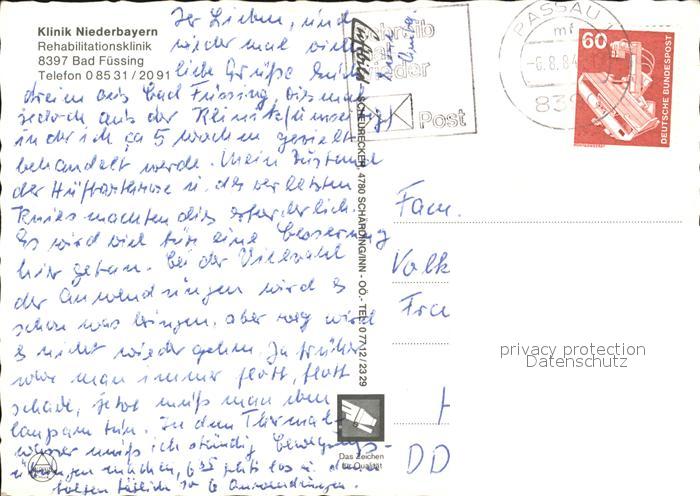 Klinik Niederbayern
Rehabilitationsklinik
8397 Bad Füssing
Telefon 0 85 31 / 20 91
Ihr Lieben, und
wieder mal viele
liebe Grüße Euch
dreien aus Bad Füssing diesmal
jedoch aus der Klinik (umseitig)
in der ich ca 5 Wochen gezielt
behandelt werde. Mein Zustand
der Hüftarthrose u. des verletzten
Knies machten dies erforderlich.
Es wird viel für eine Besserung
hier getan. Bei der Vielzahl
der Anwendungen wird es
schon was bringen, aber weg wird
es nicht wieder gehen. Ja früher
war man immer flott, flott
schade, jetzt muß man eben
langsam tun. In dem Thermal-
wasser muß ich ständig Bewegungs-
übungen machen, 6 geht's los in
täglich so 6 Anwendungen.
Luftbild
SCHEURECKER, 4780 SCHÄRDING/INN - OÖ. - TEL. 0 77 12 / 23 29
Schreib
mal
wieder
Post
PASSAU 1
mf
-6.8.84
839
60
DEUTSCHE BUNDESPOST
Fam.
Volk
Fra
DD
Das Zeichen
für Qualität
privacy protection
Datenschutz